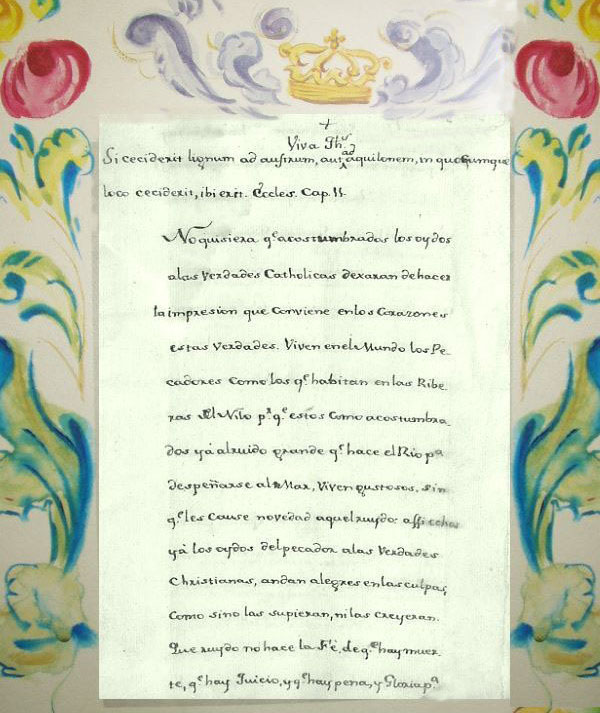 +
Viva Jhs
Si ceciderit lignum ad austrum, aut ad aquilonem, in quocumque
loco ceciderit, ibi erit. Eccles. Cap. 11.
No quisiera qe acostumbrados los oydos
a las Verdades Catholicas dexaran de hacer
la impresion que conviene en los Corazones
estas Verdades. Viven en el Mundo los Pe-
cadores como los qe habitan en las Ribe-
ras del Nilo pr qe estos como acostumbra-
dos yá al ruido grande qe hace el Rio pa
despeñarse al Mar, Viven gustosos, sin
qe les cause novedad aquel ruydo: assi
yá los oydos del pecador a las Verdades
Christianas, andan alegres en las culpas,
como si no las supieran, ni las creyeran.
Que ruydo no hace la Fé, de qe hay muer-
te, qe hay Juicio, y qe hay pena, y Gloria pa